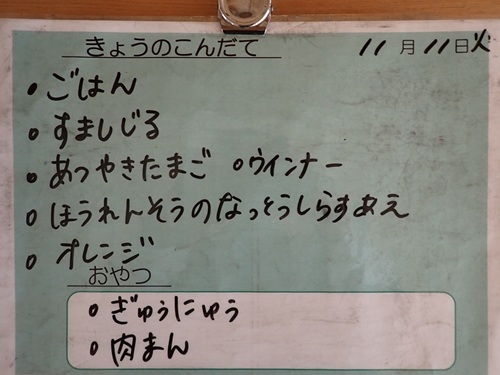 きょうのこんだて 11月11日火
・ごはん
・すましじる
・あつやきたまご ・ウインナー
・ほうれんそうのなっとうしらすあえ
・オレンジ
おやつ
・ぎゅうにゅう
・肉まん